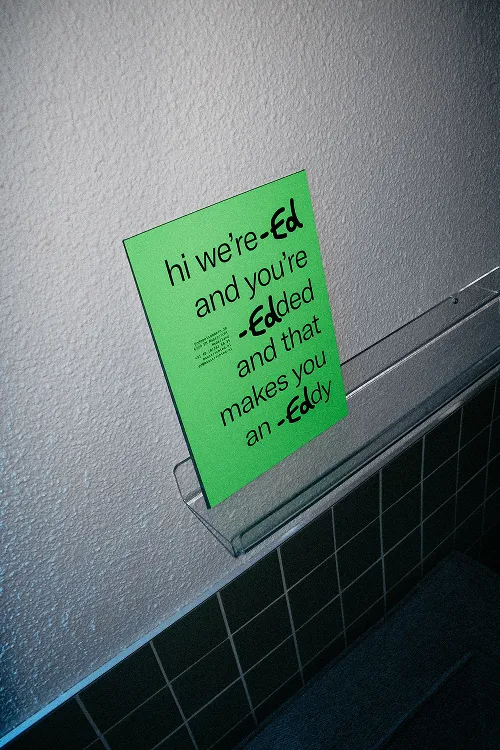 hi we're -Ed
and you're
-Edded
and that
makes you
an -Eddy